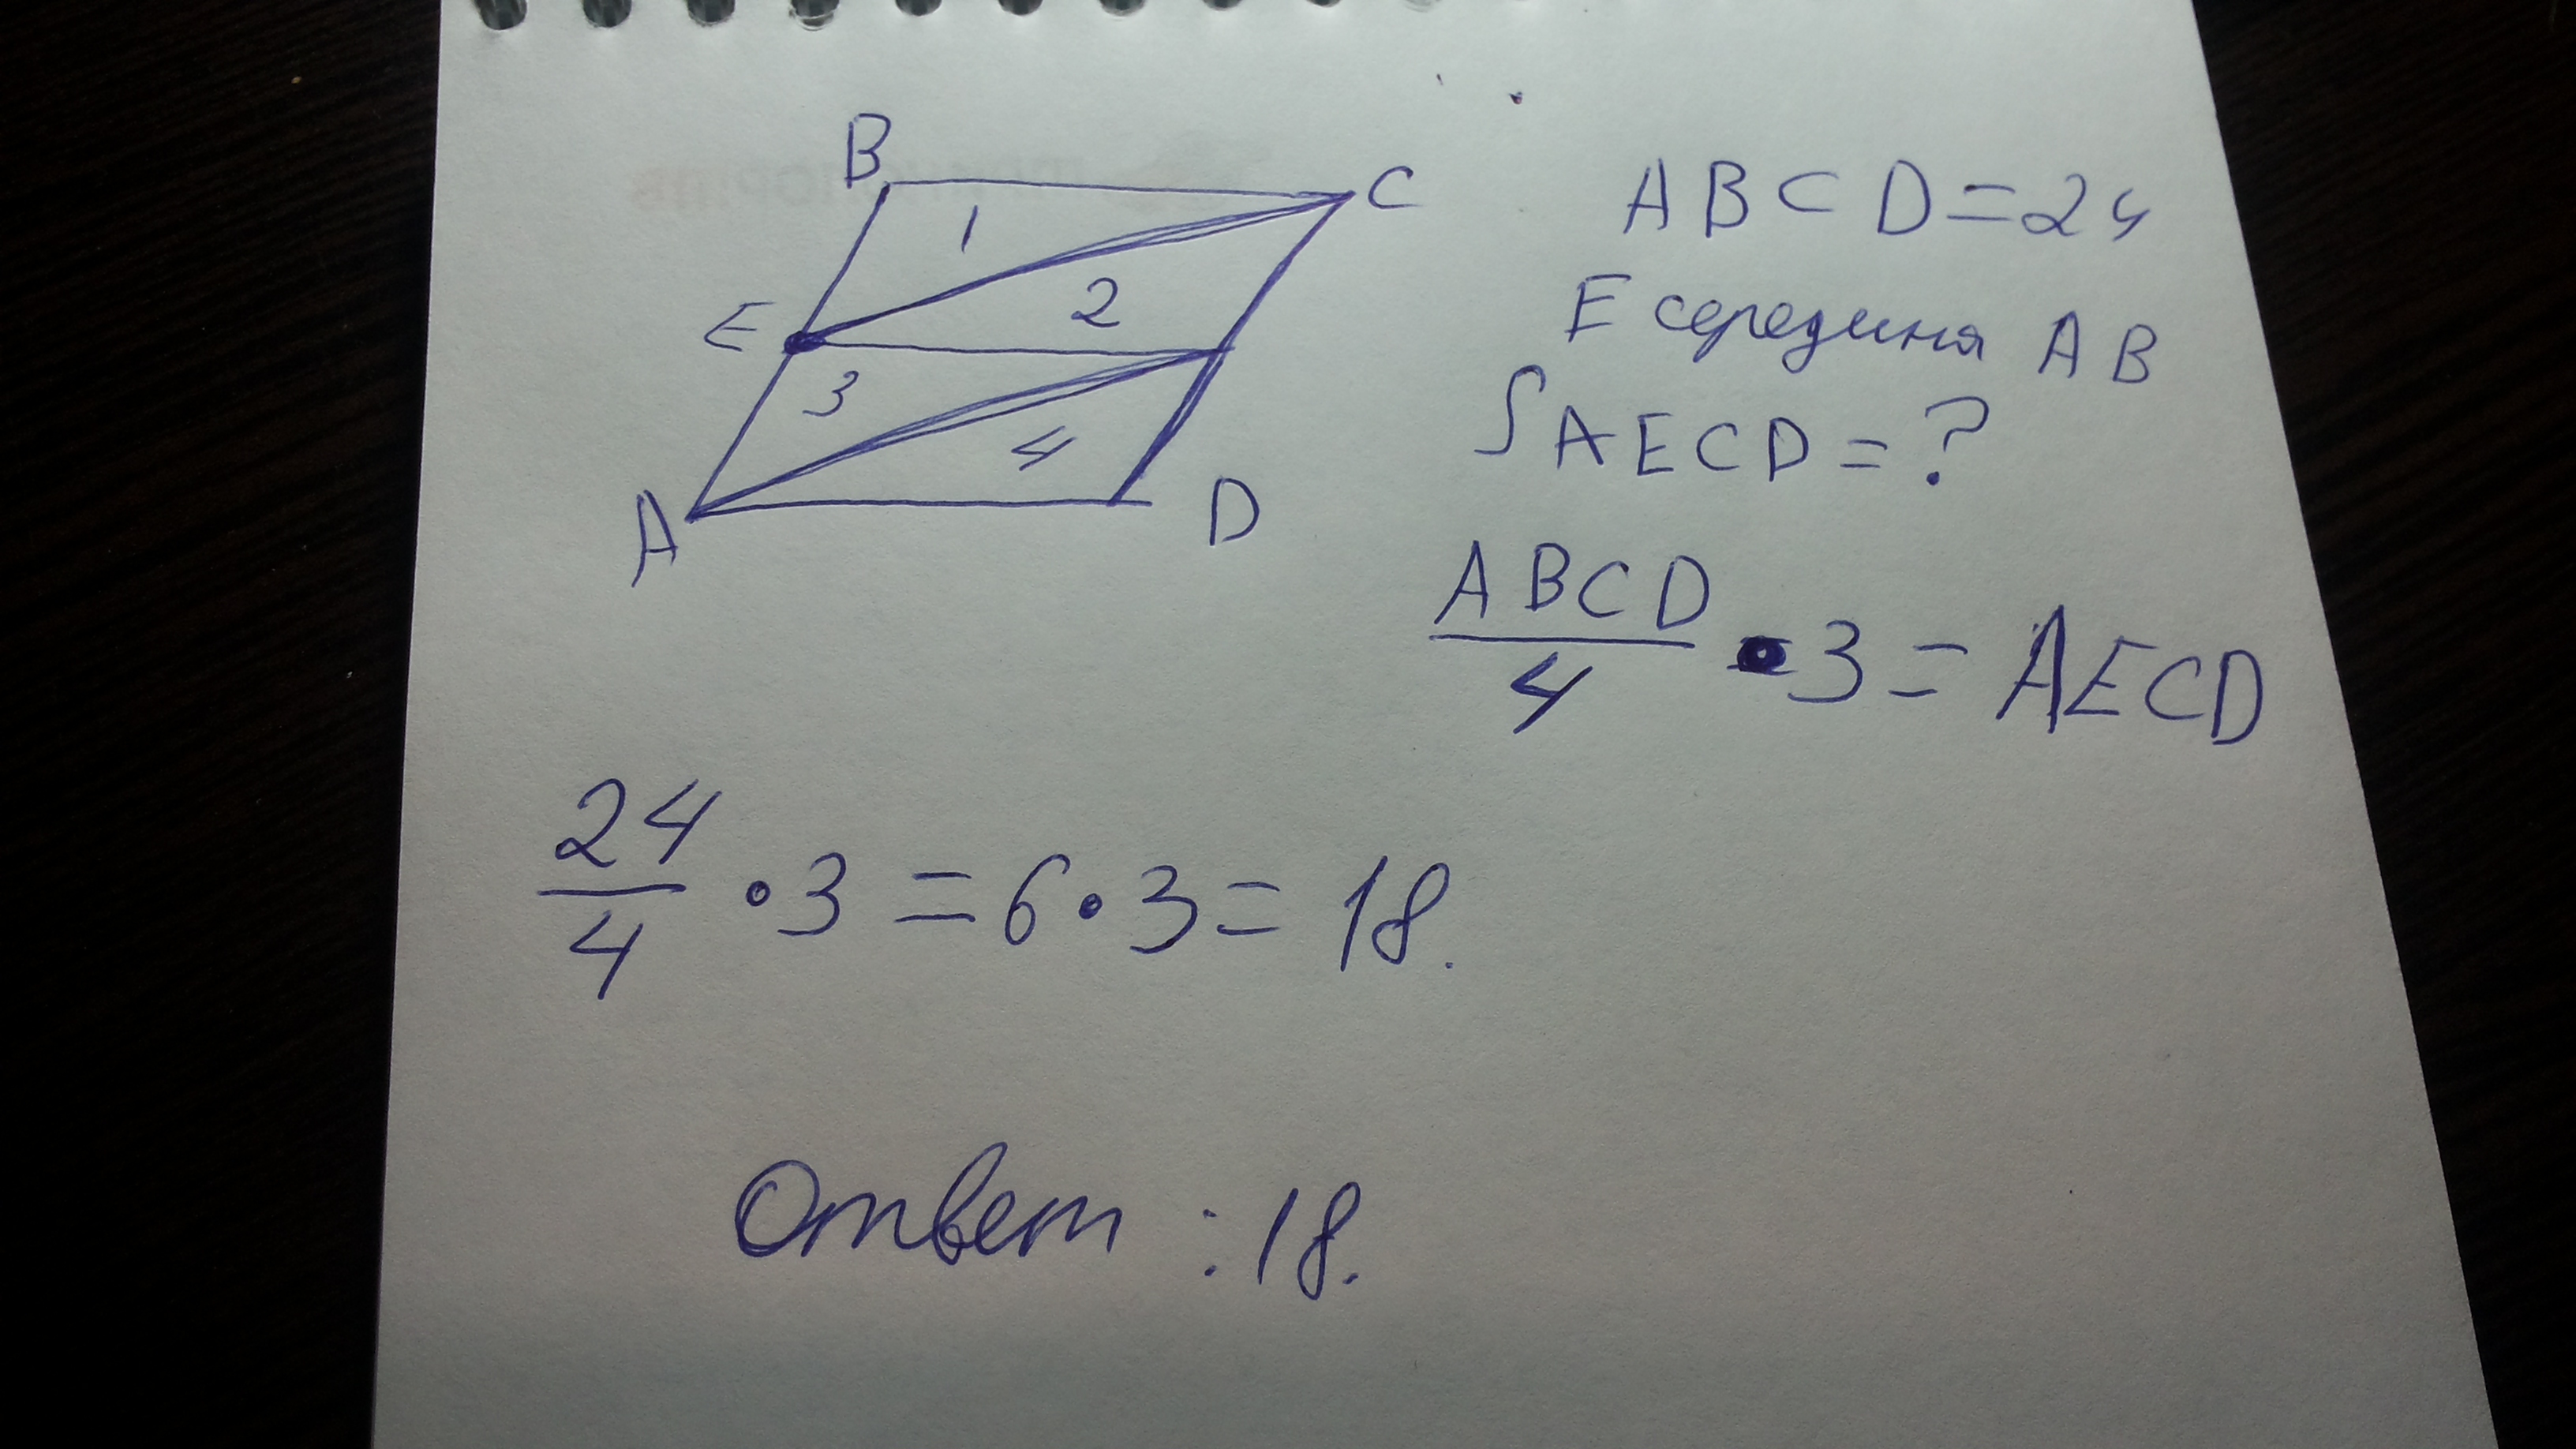 B
C
1
2
E
3
4
A
D
ABCD=24
E середина AB
SAECD=?
ABCD/4 • 3 = AECD
24/4 • 3 = 6 • 3 = 18.
Ответ: 18.